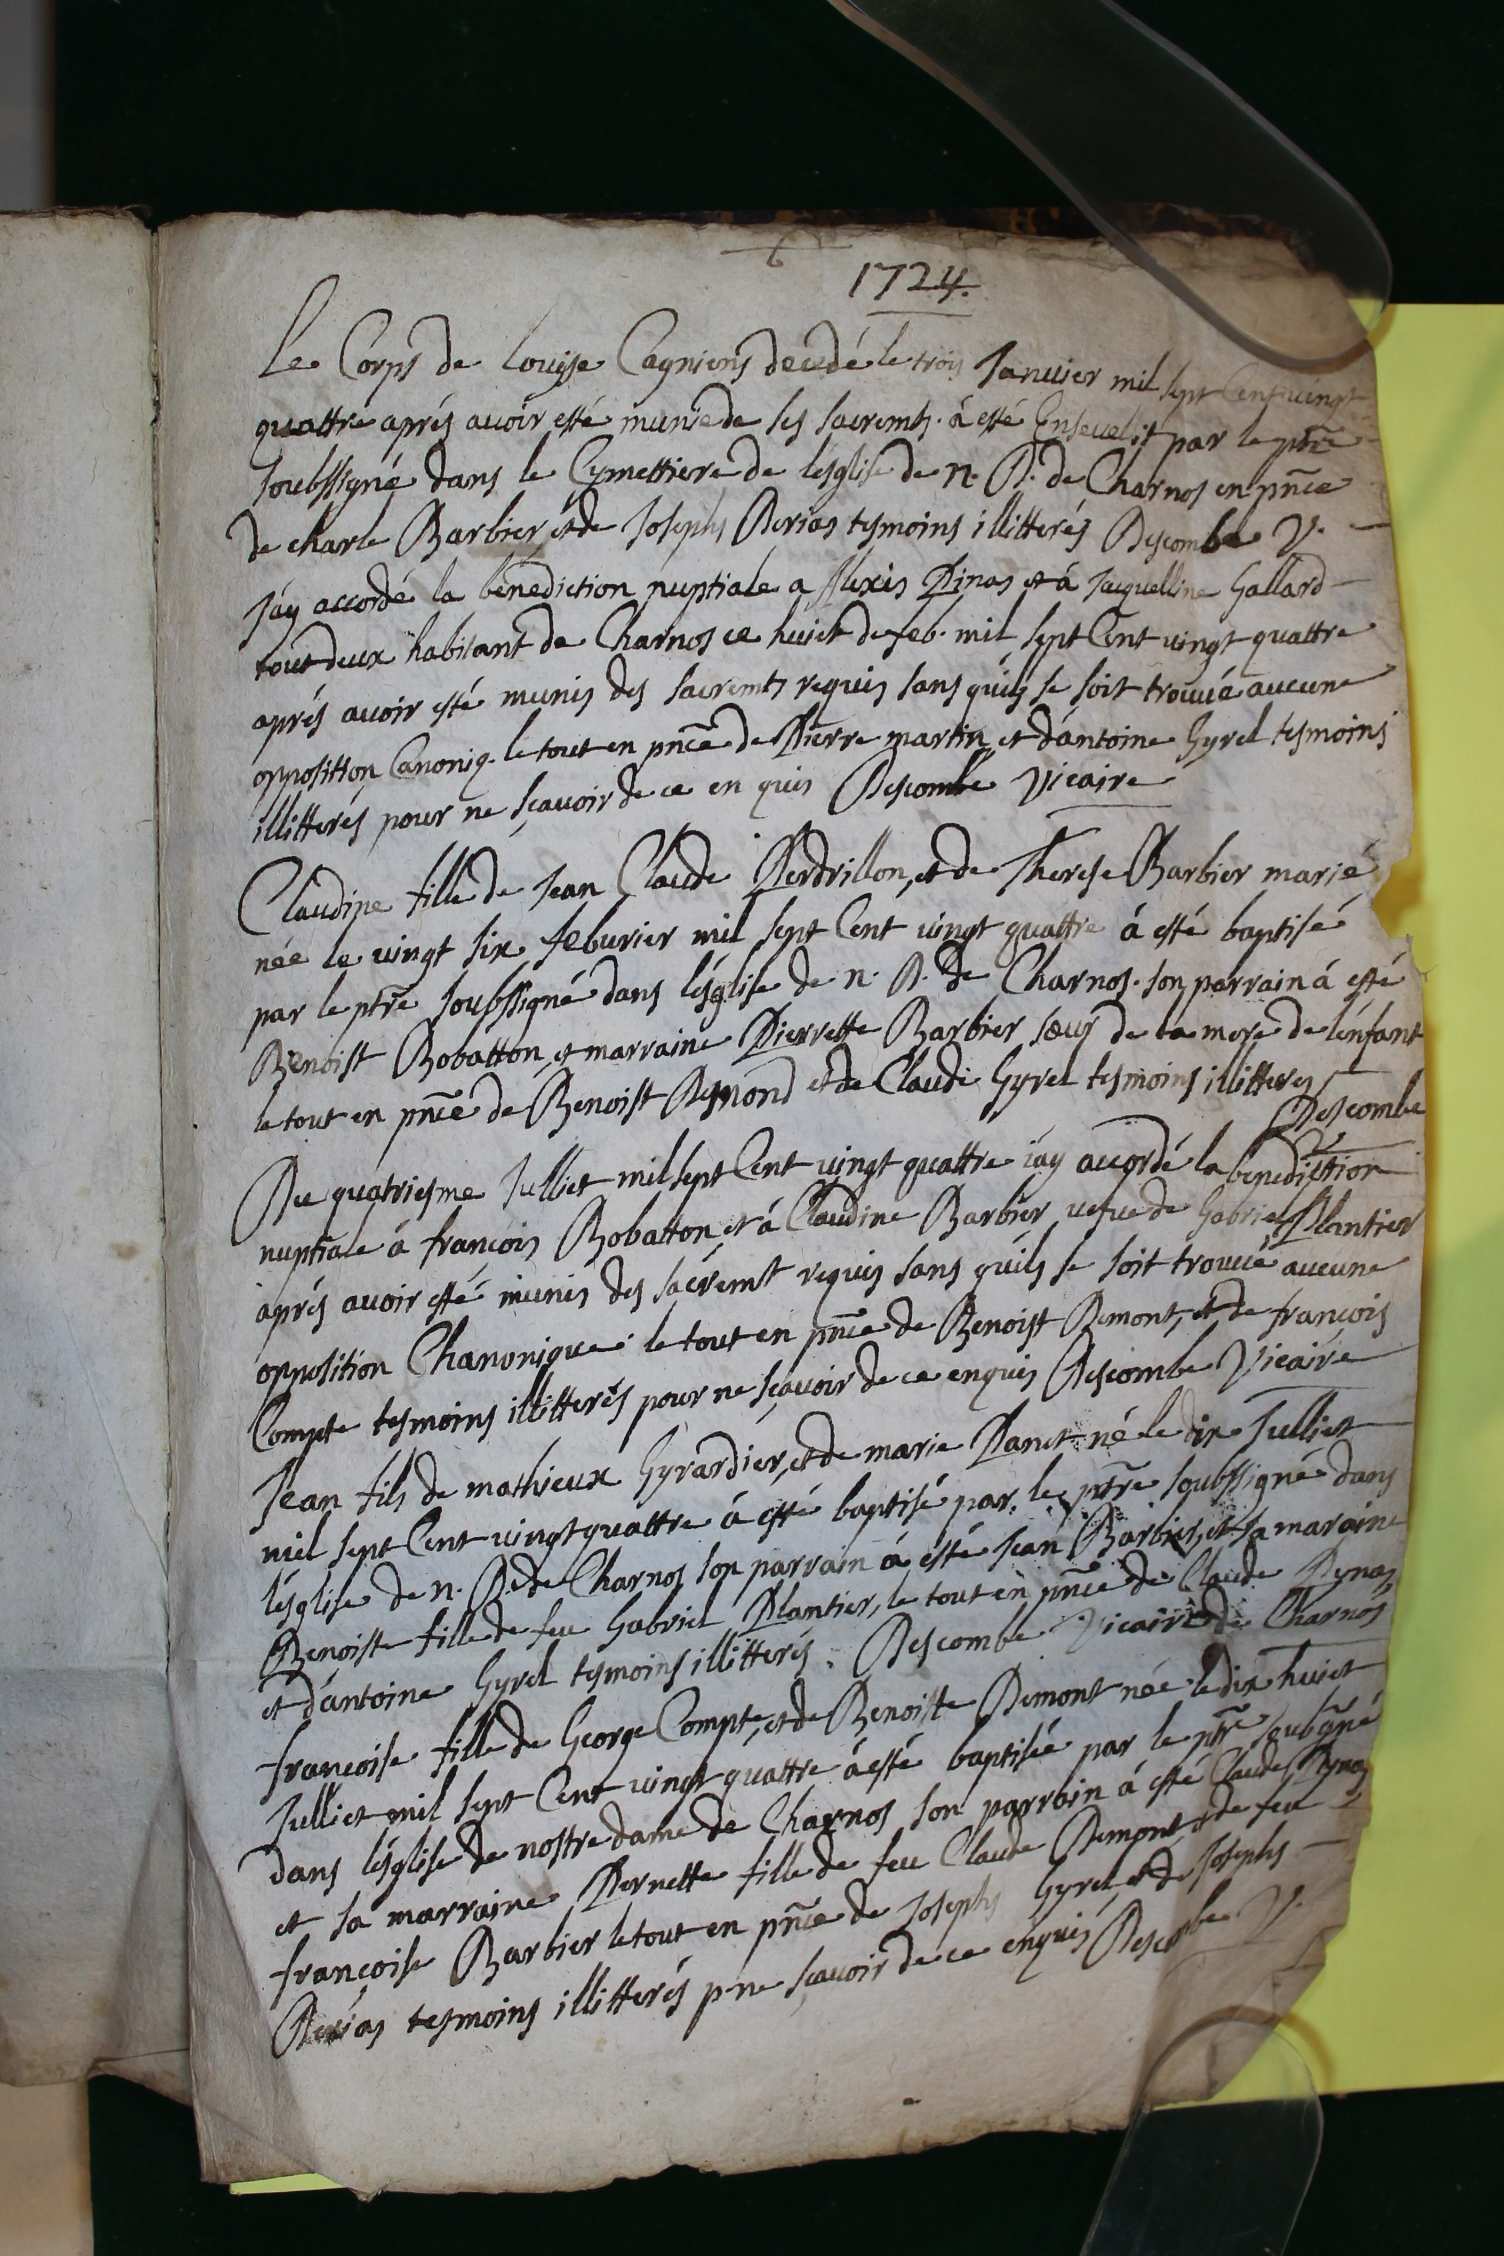 1724.
Le Corps de Louise Cagniens decedé le trois Januier mil sept Cent vingt
quattre aprés auoir esté munie de ses sacremts. á esté Enseuelit par le ptre
soubssigné dans le Cymettiere de lésglise de n. D. de Charnos en pnce
de charle Barbier et de Josephs Derias tesmoins illitterés Descombe V.
J'ay accordé la bénediction nuptiale a Alexis Pinas et á Jacquelline Gallard
tout deux habitant de Charnos ce huict de feb. mil sept Cent vingt quattre
aprés auoir esté munis des sacremts requis sans quils se soit trouué aucune
opposition Canoniq. le tout en pnce de Pierre martin et dántoine Gyrel tesmoins
illitterés pour ne sçauoir de ce en quis Descombe Vicaire
Claudine fille de Jean Claude Perdrillon, et de Therese Barbier marié
née le vingt six feburier mil sept Cent vingt quattre á esté baptisé
par le ptre soubssigné dans lésglise de n. D. de Charnos. son parrain á esté
Benoist Bobatton, et marraine Pierrette Barbier sœur de la mere de lénfant
le tout en pnce de Benoist Desmond et de Claude Gyrel tesmoins illitteres
Descombe
V
Du quatriesme Julliet mil sept Cent vingt quattre iáy accordé la benediction
nuptiale á françois Bobatton, et á Claudine Barbier vefue de Gabriel Plantier
aprés auoir esté munis des sacremt requis sans quils se soit trouué aucune
opposition Chanonique le tout en pnce de Benoist Demont, et de françois
Compte tesmoins illitterés pour ne sçauoir de ce enquis Descombe Vicaire
Jean fils de mathieux Gyrardier, et de marie Panet né le dix Julliet
mil sept Cent vingt quattre á esté baptisé par le ptre soubssigné dans
lésglise de n. D. de Charnos son parrain á esté Jean Barbier, et sa maraine
Benoiste fille de feu Gabriel Plantier, le tout en pnce de Claude Pynas,
et dántoine Gyrel tesmoins illitterés. Descombe Vicaire de Charnos
francoise fille de George Compte, et de Benoiste Demont née le dix huict
Julliet mil sept Cent vingt quattre á esté baptisée par le ptre soubgné
dans lésglise de nostre dame de Charnos son parrain á esté Claude Pynas
et sa marraine Pernette fille de feu Claude Demont et de feu
françoise Barbier le tout en pnce de Josephs Gyrel, et de Josephs
Derias tesmoins illitterés p. ne sçauoir de ce enquis Descombe V.